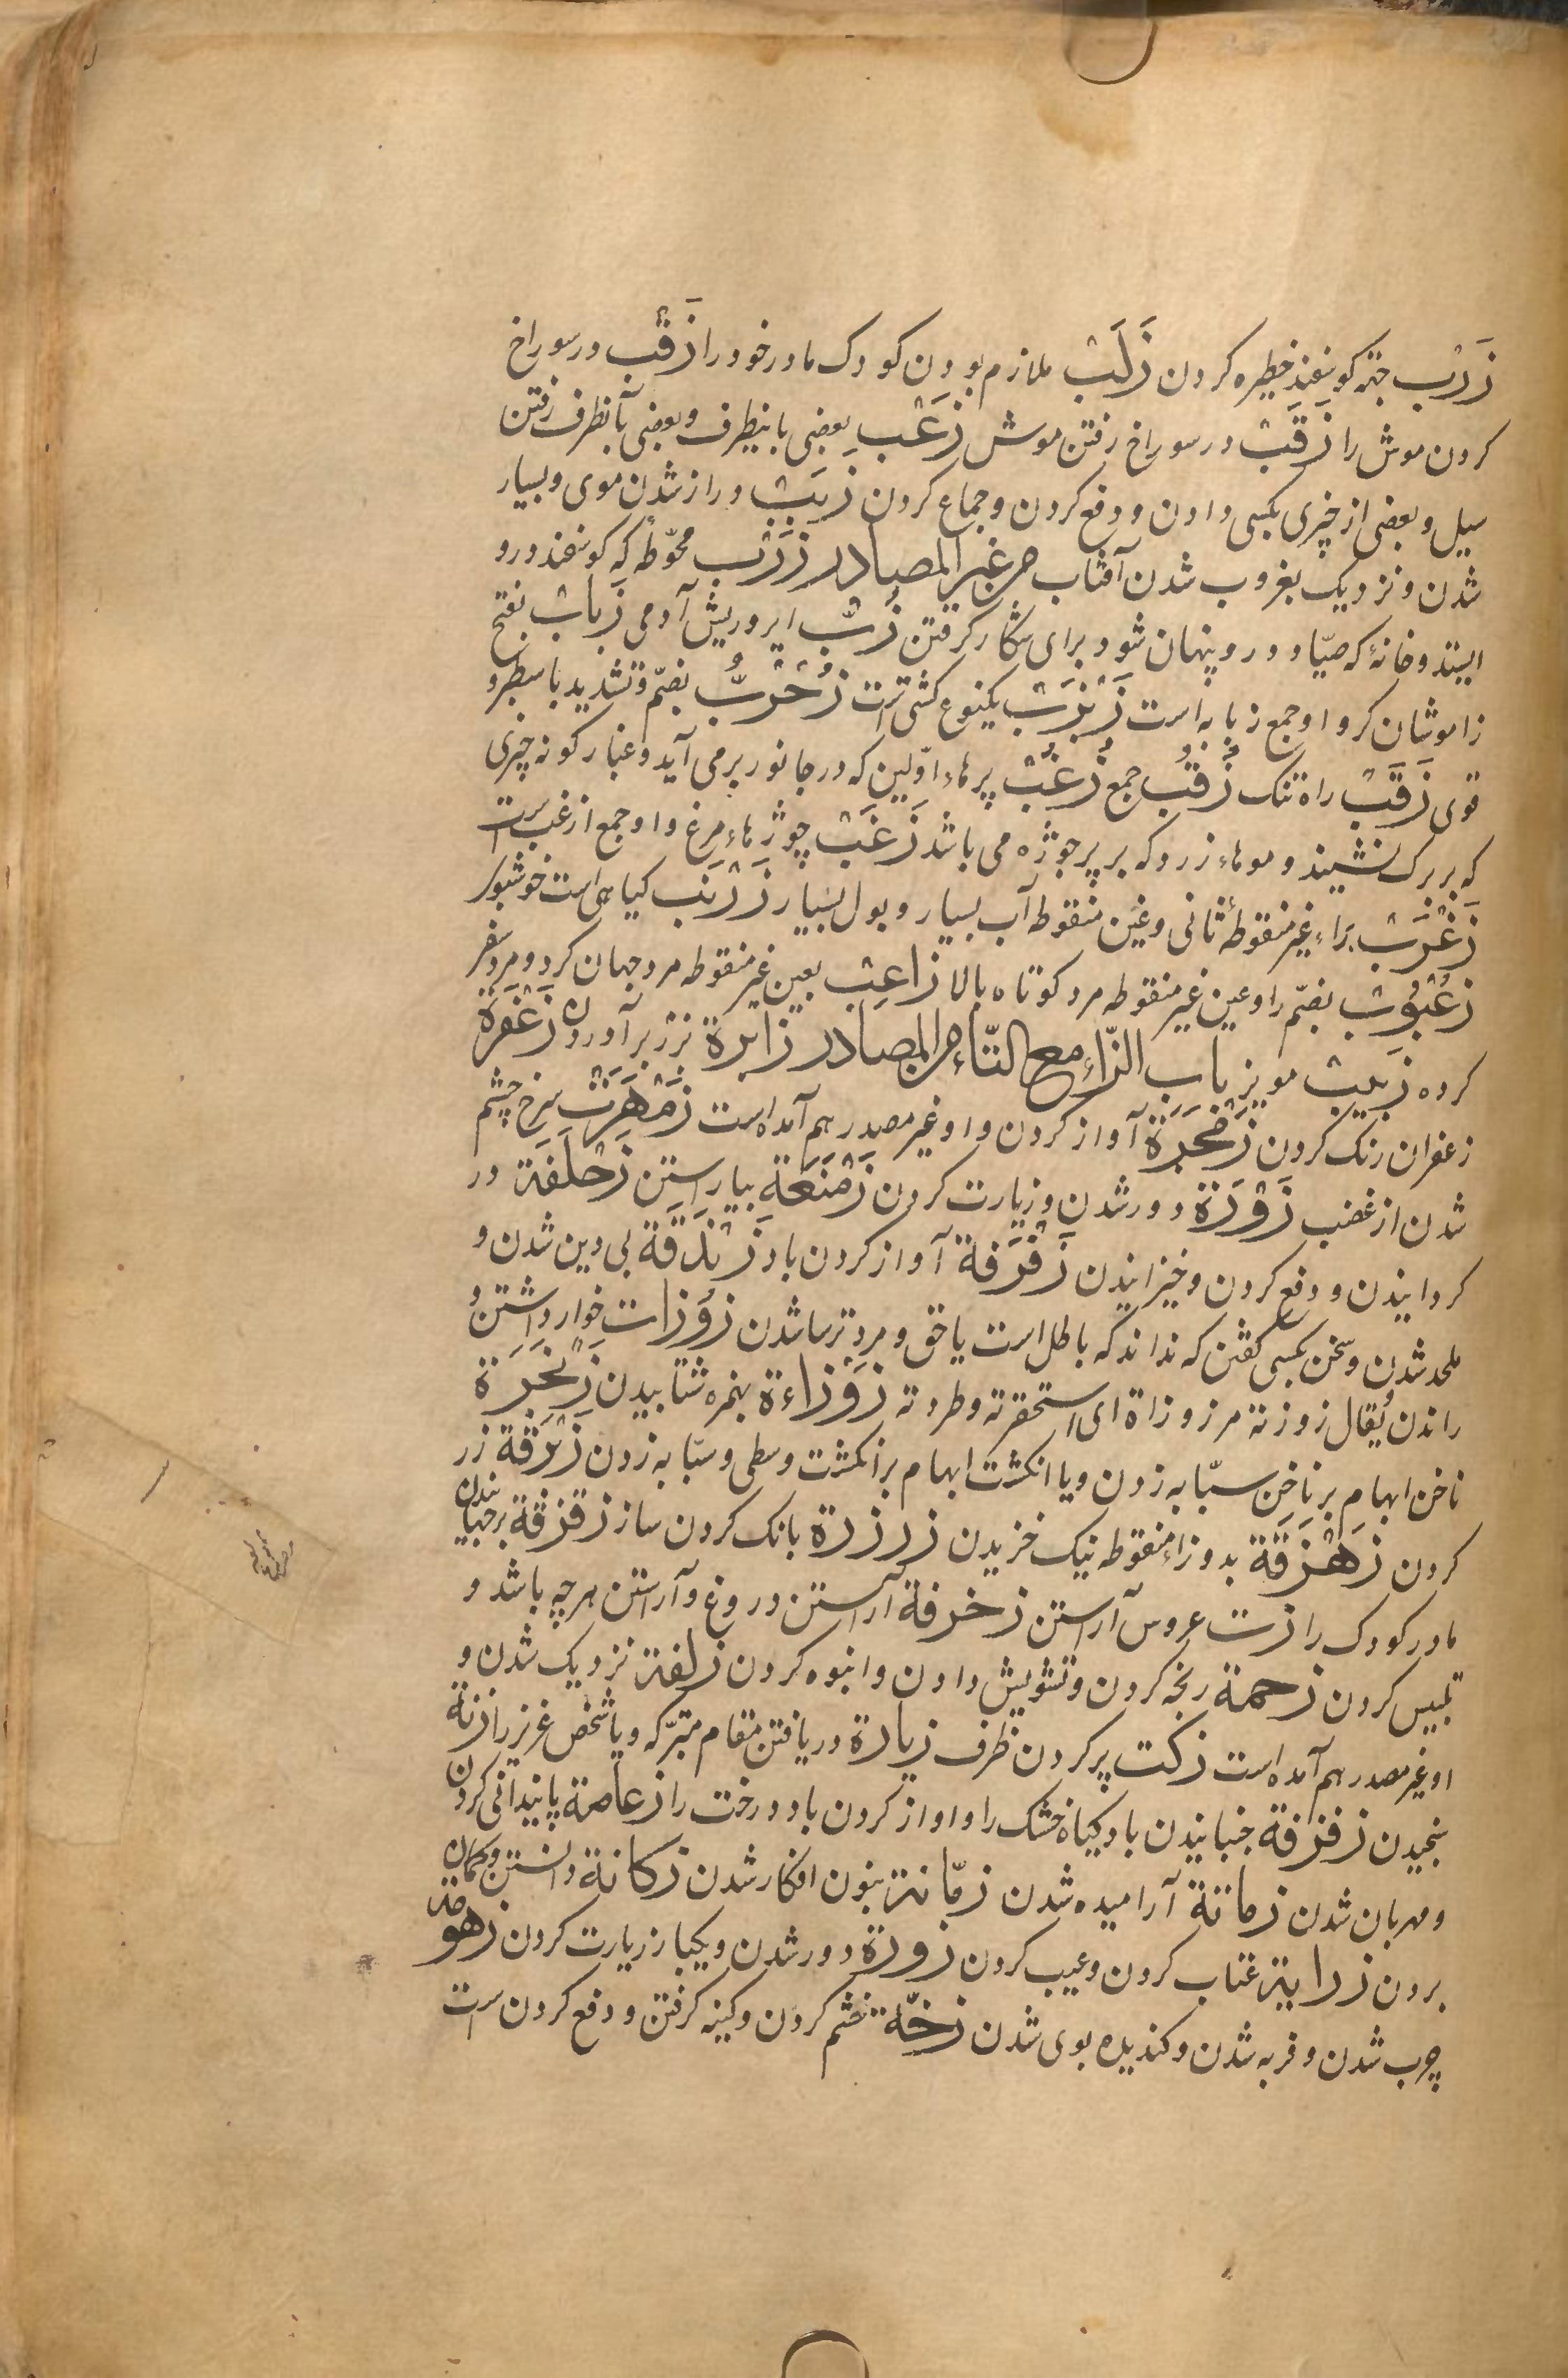 زَرْب جهة کوسفند خطیره کردن زَلَب ملازم بودن کودک مادر خود را زَقْب در سوراخ
کردن موش را زَقَب در سوراخ رفتن موش زَعْب بعضی باینطرف و بعضی بآنطرف رفتن
سیل و بعضی از چیزی بکسی دادن و دفع کردن و جماع کردن زبَب دراز شدن موی و بسیار
شدن و نزدیک بغروب شدن آفتاب من غیر المصادر زَرْب محوّطه که کوسفند درو
ایستد و خانهٔ که صیّاد درو پنهان شود برای شکار کرفتن زُبّ ایر و ریش آدمی زَباب بفتح
زا موشان کر و او جمع زبابه است زَنْبَرَب یکنوع کشتی است زُخْرُبّ بضمّ و تشدید با سطبر و
قوی زَقَب راه تنک زُقُب جمع زُغُب پرهاء اوّلین که در جانور بر می آید و غبار کونه چیزی
که بر برک نشیند و موهاء زرد که بر پر جوژه می باشد زَغَب چوژهاء مرغ و او جمع ازغب است
زَغْرَب براء غیر منقوطهٔ ثانی و غین منقوطه آب بسیار و بول بسیار زَرْنَب کیاهی است خوشبو
زُعْبُوب بضمّ زا و عین غیر منقوطه مرد کوتاه بالا زاعِب بعین غیر منقوطه مرد جهان کرد و مرد سفر
کرده زَبیب مویز باب الزّاء مع التّاء من المصادر زابرة نزز بر آوردن زَعْفَرَة
زعفران رنک کردن زَمْجَرَة آواز کردن و او غیر مصدر هم آمده است زَمْهَرَت سرخ چشم
شدن از غضب زَوْرَة دور شدن و زیارت کردن زَمْنَعَة بیاراستن زَحْلَفَة در
کردانیدن و دفع کردن و خیزانیدن زَفْزَفة آواز کردن باد زَنْدَقة بی دین شدن و
ملحد شدن و سخن بکسی کفتن که نداند که باطل است یا حق و مرد ترسا شدن زَوْزات خوار داشتن و
راندن یُقال زوزته مرزوزاة ای استحقرته و طردته زَوْزاءة بهمزه شتابیدن زَنْجَرَة
ناخن ابهام بر ناخن سبّابه زدن و یا انکشت ابهام بر انکشت وسطی و سبّابه زدن زَبْرَقة زرد
کردن زَهْزَقة بدو زاء منقوطه نیک خزیدن زرزرة بانک کردن سار زقزقة برجهانیدن
مادر کودک را زت عروس آراستن زخرفة آراستن دروغ و آراستن هر چه باشد و
تلبیس کردن زحمة رنجه کردن و تشویش دادن و انبوه کردن زلفة نزدیک شدن و
او غیر مصدر هم آمده است زکت پر کردن ظرف زیارة دریافتن مقام متبرّکه و یا شخص عزیز را زنة
سنجیدن زفزفة جنبانیدن باد کیاه خشک را و اواز کردن باد درخت را زعامة پایندانی کردن
و مهربان شدن زماتة آرامیده شدن زمّانة بنون افکار شدن زکانة دانستن و کمان
بردن زرایة عتاب کردن و عیب کردن زورة دور شدن و یکبار زیارت کردن زهومة
چرب شدن و فربه شدن و کندیده بوی شدن زخّة خشم کردن و کینه کرفتن و دفع کردن است